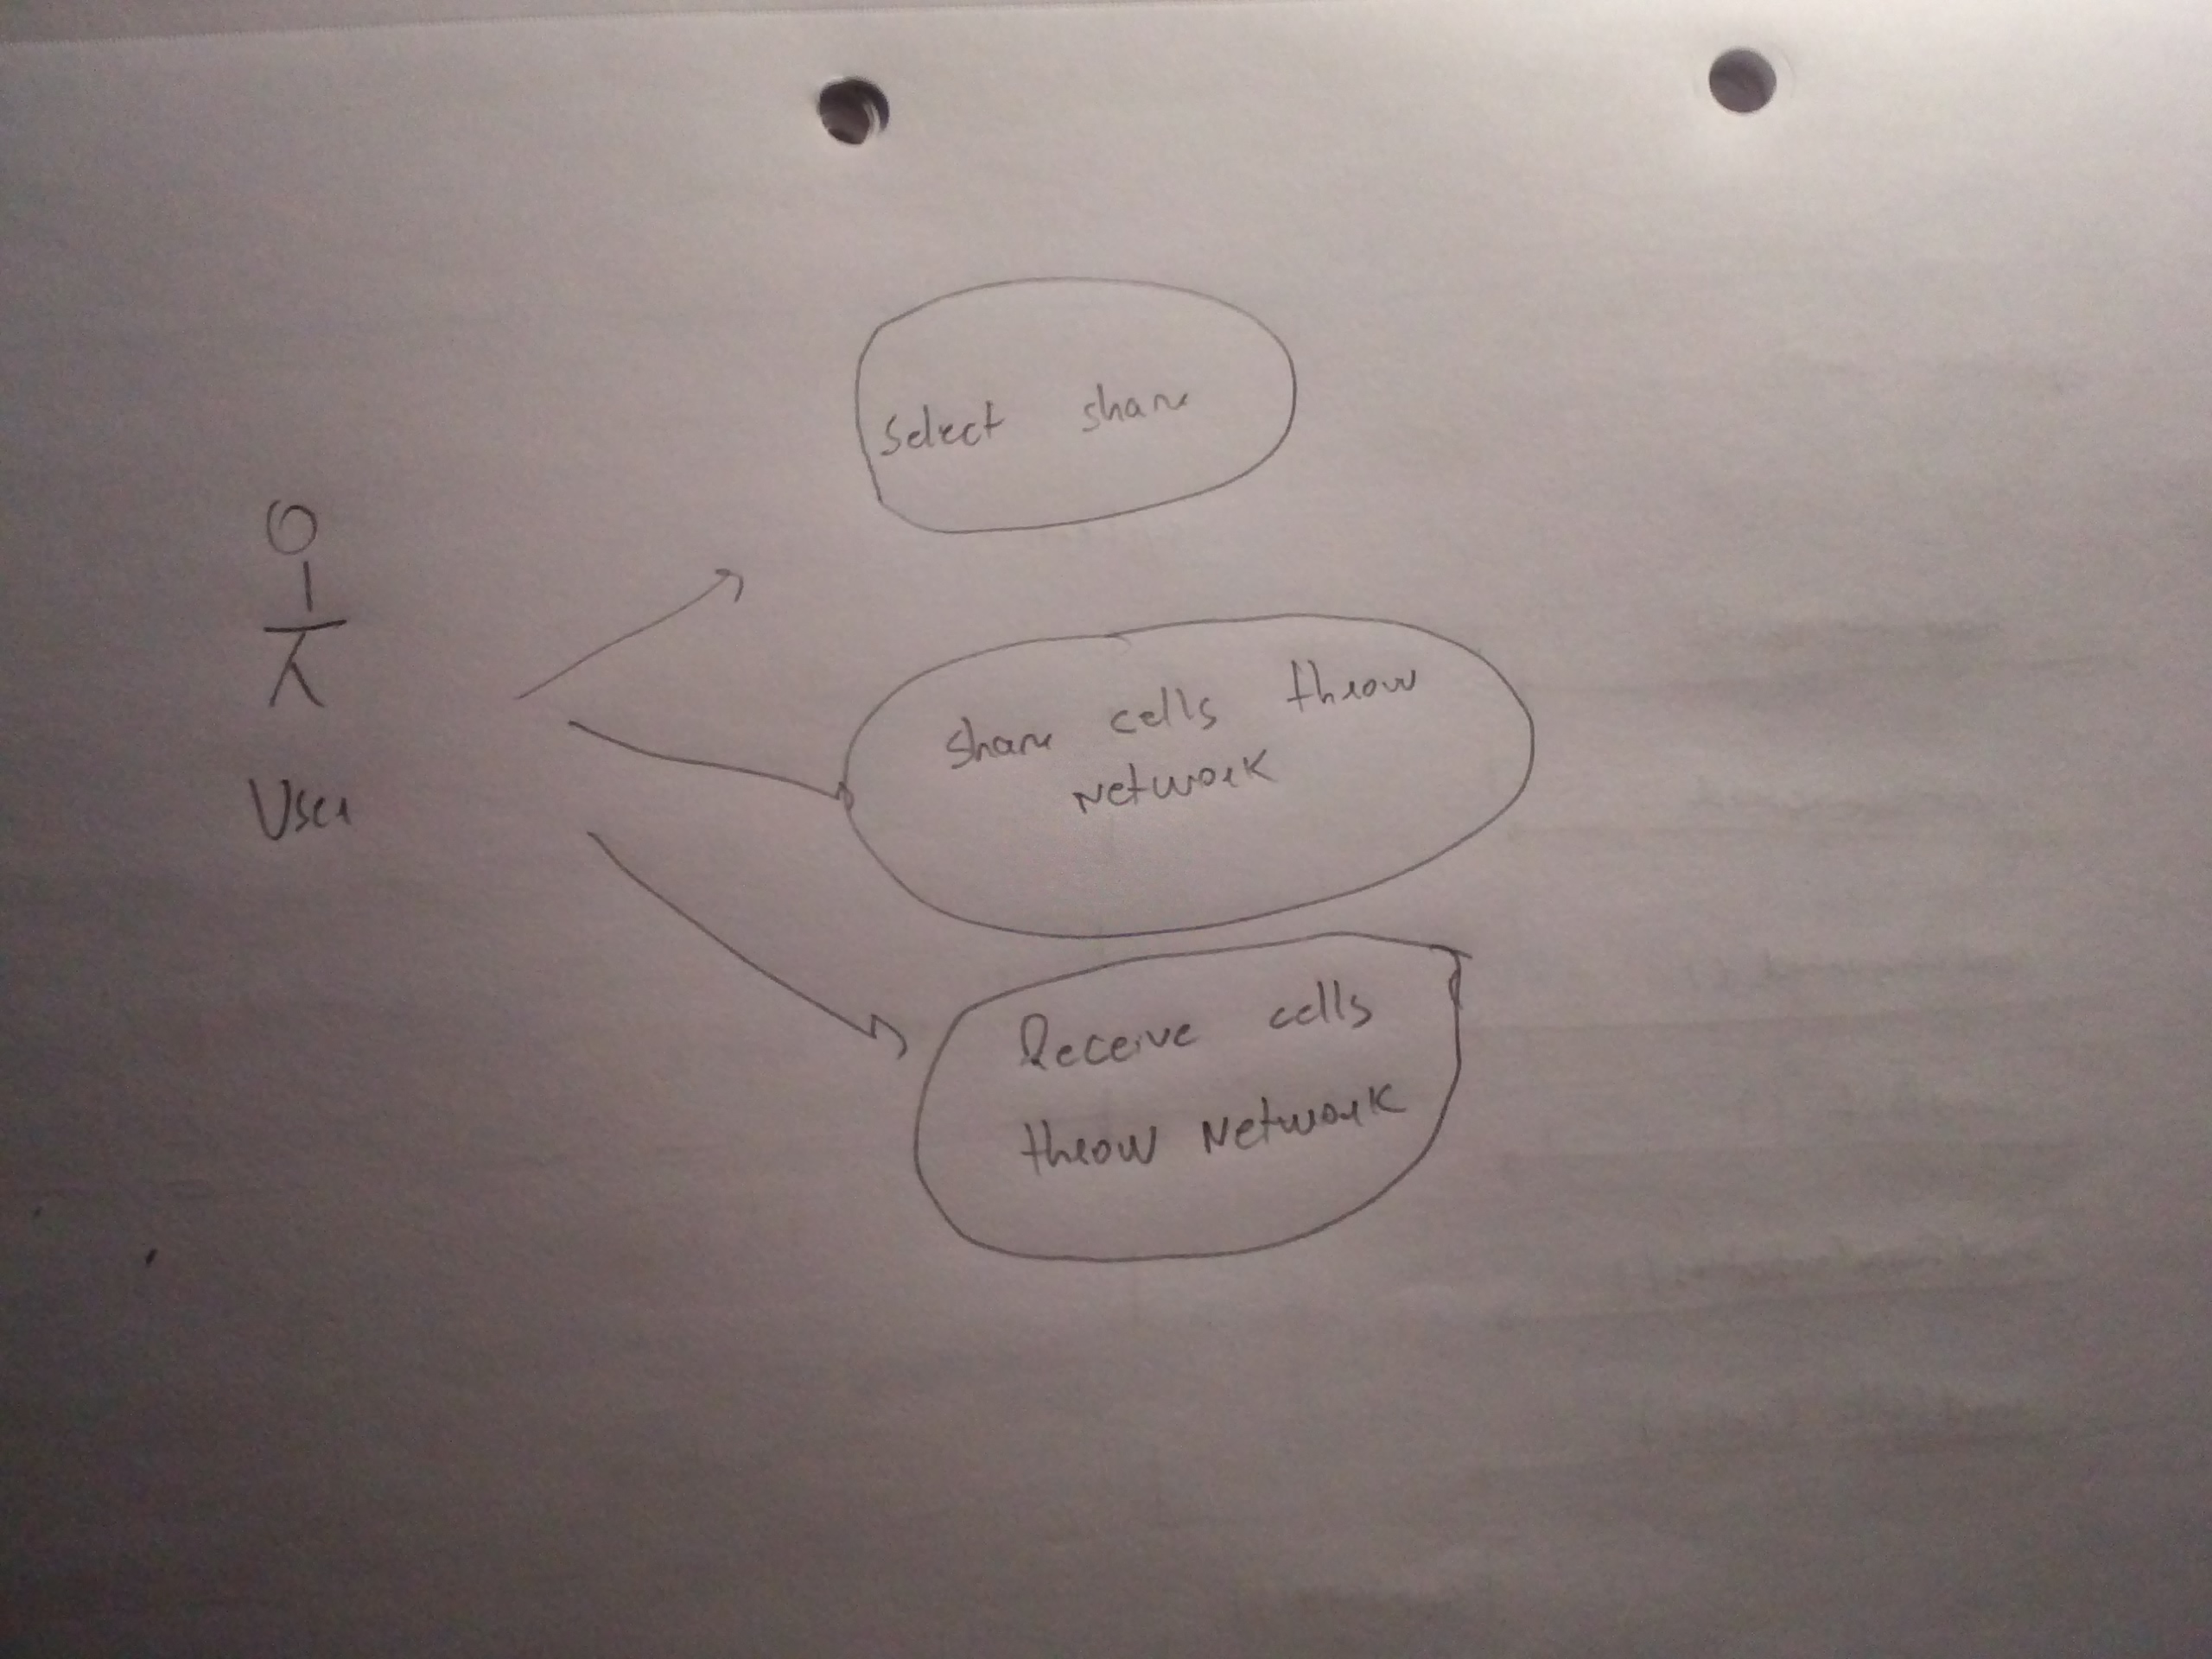 Select share
User
share cells throw
network
Receive cells
throw network